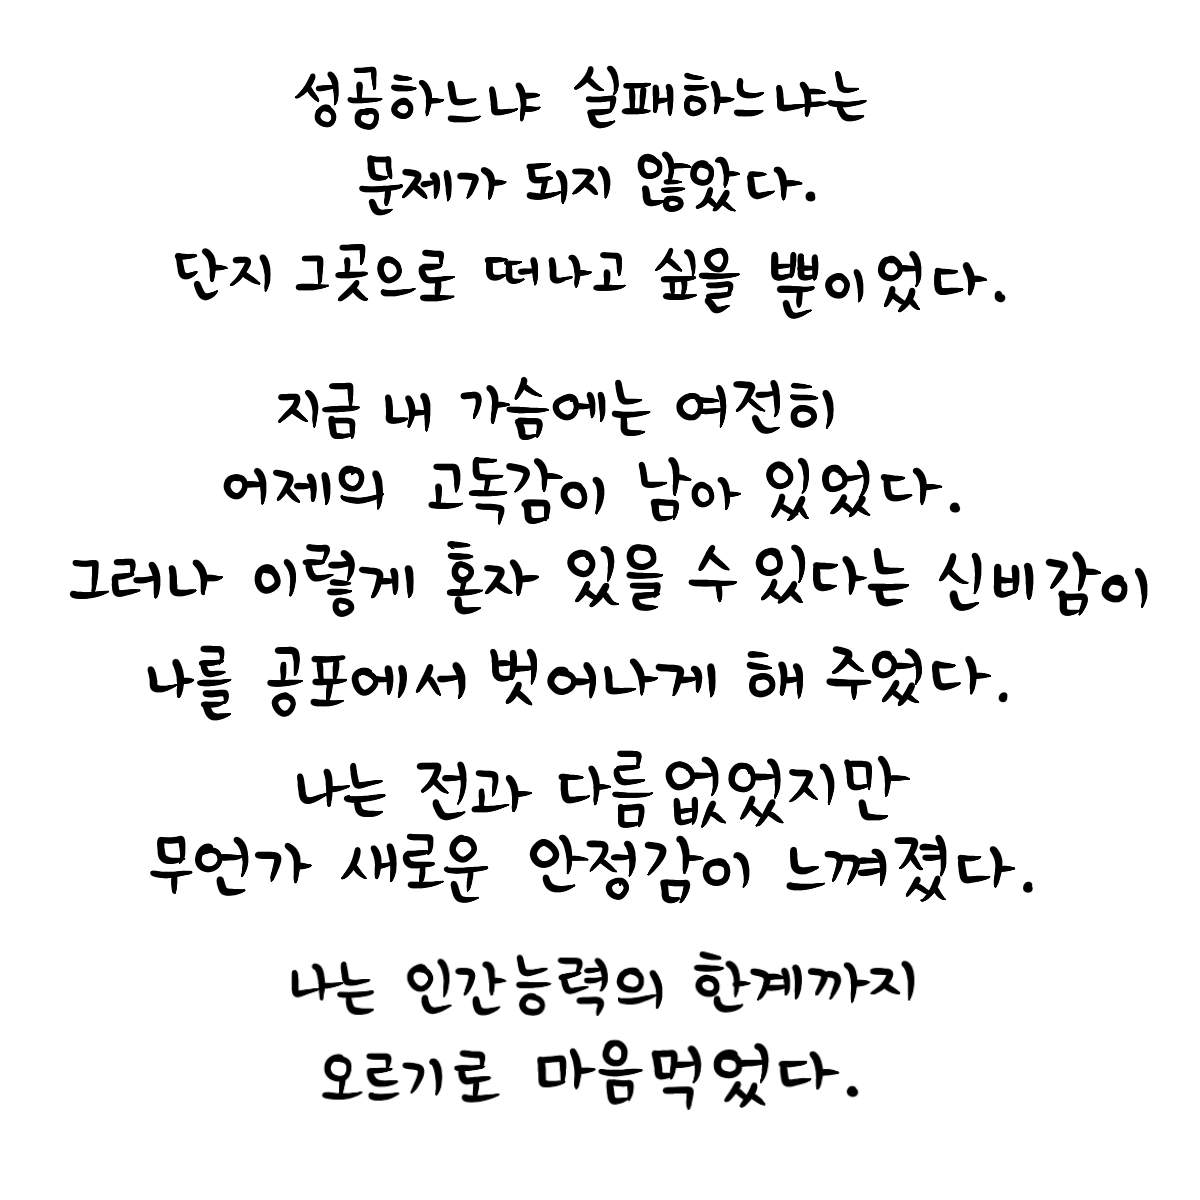 성공하느냐 실패하느냐는
문제가 되지 않았다.
단지 그곳으로 떠나고 싶을 뿐이었다.
지금 내 가슴에는 여전히
어제의 고독감이 남아 있었다.
그러나 이렇게 혼자 있을 수 있다는 신비감이
나를 공포에서 벗어나게 해 주었다.
나는 전과 다름없었지만
무언가 새로운 안정감이 느껴졌다.
나는 인간능력의 한계까지
오르기로 마음먹었다.